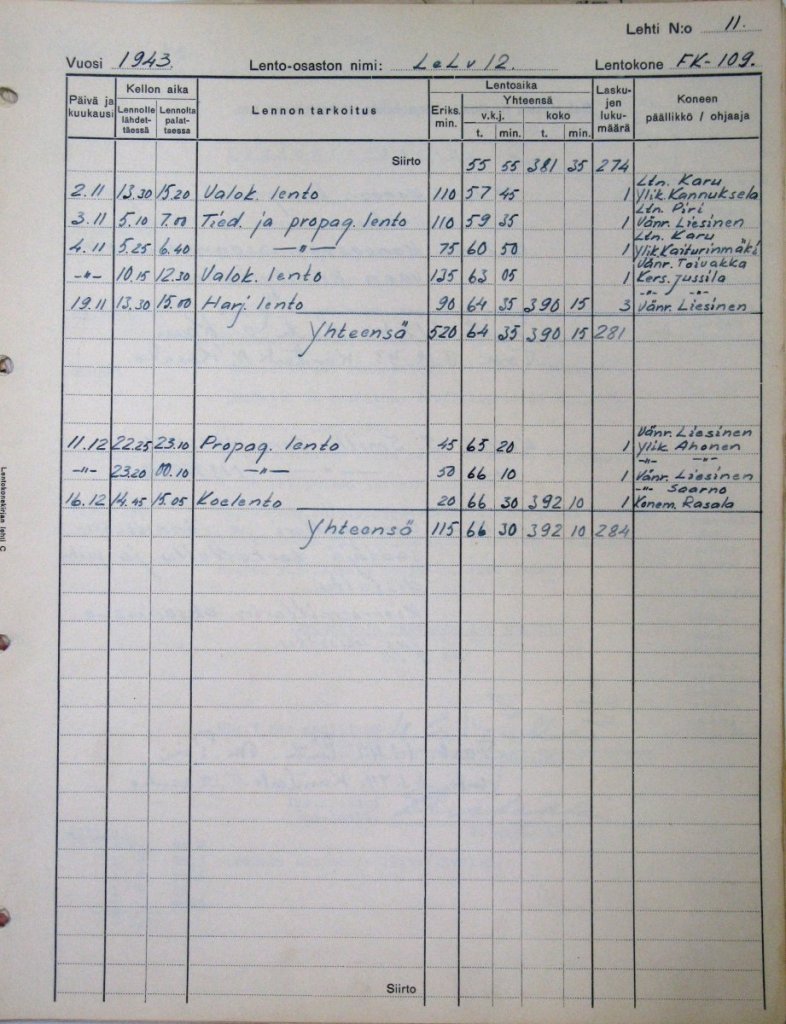 Lehti N:o 11.
Vuosi 1943. Lento-osaston nimi: LeLv 12. Lentokone FK-109.
Päivä ja kuukausi Kellon aika Lennolle lähdet-täessä Lennolta palat-taessa Lennon tarkoitus Lentoaika Eriks. min. Yhteensä v.k.j. t. min. koko t. min. Lasku-jen luku-määrä Koneen päällikkö / ohjaaja
Siirto 55 55 381 35 274
Ltn. Karu
2.11 13.30 15.20 Valok. lento 110 57 45 1 Ylik. Kannuksela
Ltn. Piri
3.11 5.10 7.00 Tied. ja propag. lento 110 59 35 1 Vänr. Liesinen
Ltn. Karu
4.11 5.25 6.40 —"— 75 60 50 1 Ylik. Kaiturinmäki
Vänr. Toivakka
-"- 10.15 12.30 Valok. lento 135 63 05 1 Kers. Jussila
-"- -"-
19.11 13.30 15.00 Harj. lento 90 64 35 390 15 3 Vänr. Liesinen
Yhteensä 520 64 35 390 15 281
Vänr. Liesinen
11.12 22.25 23.10 Propag. lento 45 65 20 1 Ylik. Ahonen
-"- -"-
-"- 23.20 00.10 —"— 50 66 10 1 Vänr. Liesinen
-"- Saarno
16.12 14.45 15.05 Koelento 20 66 30 392 10 1 Konem. Rasala
Yhteensä 115 66 30 392 10 284
Siirto
Lentokonekirjan lehti C